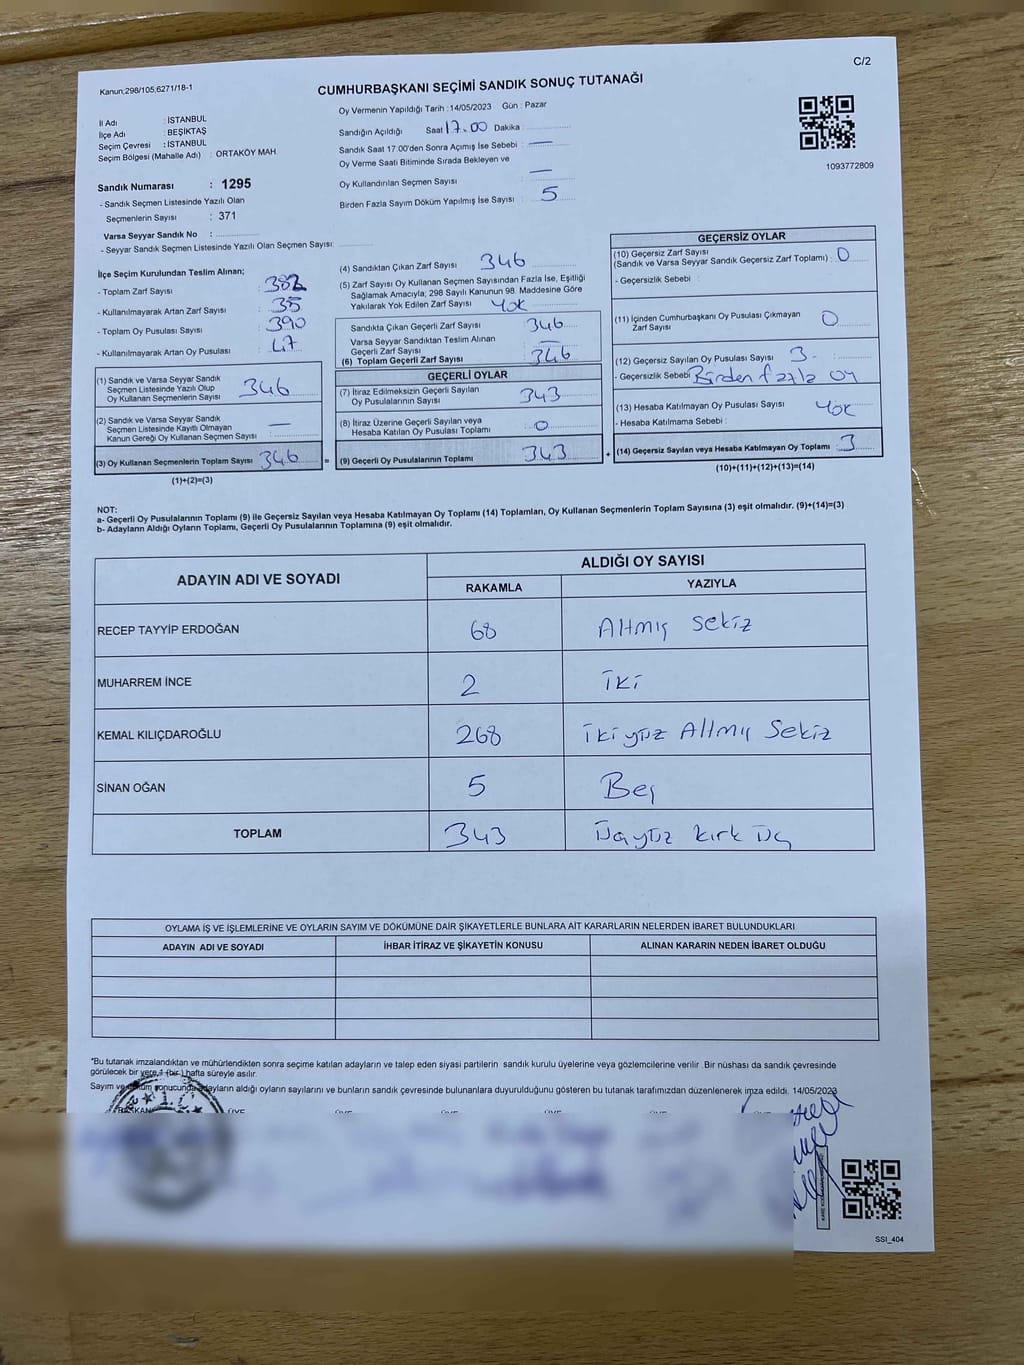 C/2
Kanun;298/105,6271/18-1
CUMHURBAŞKANI SEÇİMİ SANDIK SONUÇ TUTANAĞI
İl Adı : İSTANBUL
İlçe Adı : BEŞİKTAŞ
Seçim Çevresi : İSTANBUL
Seçim Bölgesi (Mahalle Adı) : ORTAKÖY MAH.
Sandık Numarası : 1295
- Sandık Seçmen Listesinde Yazılı Olan
Seçmenlerin Sayısı : 371
Varsa Seyyar Sandık No :
- Seyyar Sandık Seçmen Listesinde Yazılı Olan Seçmen Sayısı:
Oy Vermenin Yapıldığı Tarih : 14/05/2023 Gün : Pazar
Sandığın Açıldığı Saat 17.00 Dakika :
Sandık Saat 17.00'den Sonra Açımış İse Sebebi : —
Oy Verme Saati Bitiminde Sırada Bekleyen ve
Oy Kullandırılan Seçmen Sayısı : —
Birden Fazla Sayım Döküm Yapılmış İse Sayısı : 5
1093772809
İlçe Seçim Kurulundan Teslim Alınan;
- Toplam Zarf Sayısı : 382
- Kullanılmayarak Artan Zarf Sayısı : 35
- Toplam Oy Pusulası Sayısı : 390
- Kullanılmayarak Artan Oy Pusulası : 47
(1) Sandık ve Varsa Seyyar Sandık
Seçmen Listesinde Yazılı Olup
Oy Kullanan Seçmenlerin Sayısı : 346
(2) Sandık ve Varsa Seyyar Sandık
Seçmen Listesinde Kayıtlı Olmayan
Kanun Gereği Oy Kullanan Seçmen Sayısı : —
(3) Oy Kullanan Seçmenlerin Toplam Sayısı : 346
(1)+(2)=(3)
=
(4) Sandıktan Çıkan Zarf Sayısı : 346
(5) Zarf Sayısı Oy Kullanan Seçmen Sayısından Fazla İse, Eşitliği
Sağlamak Amacıyla, 298 Sayılı Kanunun 98. Maddesine Göre
Yakılarak Yok Edilen Zarf Sayısı : YOK
Sandıkta Çıkan Geçerli Zarf Sayısı : 346
Varsa Seyyar Sandıktan Teslim Alınan
Geçerli Zarf Sayısı : —
(6) Toplam Geçerli Zarf Sayısı : 346
GEÇERLİ OYLAR
(7) İtiraz Edilmeksizin Geçerli Sayılan
Oy Pusulalarının Sayısı : 343
(8) İtiraz Üzerine Geçerli Sayılan veya
Hesaba Katılan Oy Pusulası Toplamı : 0
(9) Geçerli Oy Pusulalarının Toplamı : 343
+
GEÇERSİZ OYLAR
(10) Geçersiz Zarf Sayısı
(Sandık ve Varsa Seyyar Sandık Geçersiz Zarf Toplamı) : 0
- Geçersizlik Sebebi :
(11) İçinden Cumhurbaşkanı Oy Pusulası Çıkmayan
Zarf Sayısı : 0
(12) Geçersiz Sayılan Oy Pusulası Sayısı : 3
- Geçersizlik Sebebi : Birden fazla oy
(13) Hesaba Katılmayan Oy Pusulası Sayısı : YOK
- Hesaba Katılmama Sebebi :
(14) Geçersiz Sayılan veya Hesaba Katılmayan Oy Toplamı : 3
(10)+(11)+(12)+(13)=(14)
NOT:
a- Geçerli Oy Pusulalarının Toplamı (9) ile Geçersiz Sayılan veya Hesaba Katılmayan Oy Toplamı (14) Toplamları, Oy Kullanan Seçmenlerin Toplam Sayısına (3) eşit olmalıdır. (9)+(14)=(3)
b- Adayların Aldığı Oyların Toplamı, Geçerli Oy Pusulalarının Toplamına (9) eşit olmalıdır.
ADAYIN ADI VE SOYADI
ALDIĞI OY SAYISI
RAKAMLA YAZIYLA
RECEP TAYYİP ERDOĞAN 68 Altmış Sekiz
MUHARREM İNCE 2 İki
KEMAL KILIÇDAROĞLU 268 İkiyüz Altmış Sekiz
SİNAN OĞAN 5 Beş
TOPLAM 343 Üçyüz Kırk Üç
OYLAMA İŞ VE İŞLEMLERİNE VE OYLARIN SAYIM VE DÖKÜMÜNE DAİR ŞİKAYETLERLE BUNLARA AİT KARARLARIN NELERDEN İBARET BULUNDUKLARI
ADAYIN ADI VE SOYADI İHBAR İTİRAZ VE ŞİKAYETİN KONUSU ALINAN KARARIN NEDEN İBARET OLDUĞU
*Bu tutanak imzalandıktan ve mühürlendikten sonra seçime katılan adayların ve talep eden siyasi partilerin sandık kurulu üyelerine veya gözlemcilerine verilir. Bir nüshası da sandık çevresinde
görülecek bir yere 1 (bir) hafta süreyle asılır.
Sayım ve döküm sonucunda adayların aldığı oyların sayılarını ve bunların sandık çevresinde bulunanlara duyurulduğunu gösteren bu tutanak tarafımızdan düzenlenerek imza edildi. 14/05/2023
BAŞKAN ÜYE ÜYE ÜYE ÜYE ÜYE
SSI_404